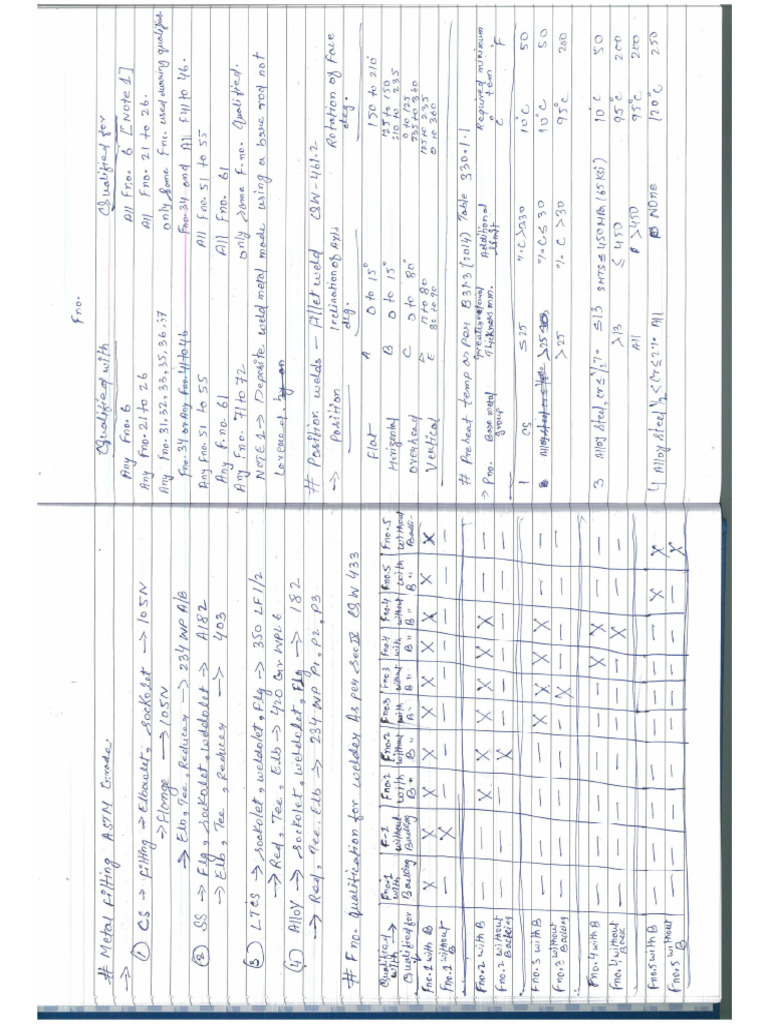 # Metal Fitting ASTM Grade.
→ ① CS → Fitting → Elbowlet, Sockolet → 105N
→ Flange → 105N
→ Elb, Tee, Reducer → 234 WP A/B
② SS → Flg, Sockolet, weldolet → A182
→ Elb, Tee, Reducer → 403
③ LTCS → Sockolet, weldolet, Flg → 350 LF1/2
→ Red, Tee, Elb → 420 Gr WPL6
④ Alloy → Sockolet, weldolet, Flg → 182
→ Red, Tee, Elb → 234 WP P1, P2, P3
# F no. Qualification for welder As per Sec IX QW 433
Qualified with → Fno.1 with Backing F-1 without Backing Fno.2 with B Fno.2 without B" Fno.3 with B" Fno.3 without B" Fno.4 with B" Fno.4 without B" Fno.5 with B" Fno.5 without Back
Qualified for
Fno.1 with B X X X X X X X X X X
Fno.1 without B — X — — — — — — — —
Fno.2 with B — — X X X X X X — —
Fno.2 without Backing — — — X — — — — — —
Fno.3 with B — — — — X X X X — —
Fno.3 without Backing — — — — — X — — — —
Fno.4 with B — — — — — — X X — —
Fno.4 without Back — — — — — — — X — —
Fno.5 with B — — — — — — — — X X
Fno.5 without B — — — — — — — — — X
F no.
Qualified with Qualified for
Any Fno. 6 All Fno. 6 [Note 1]
Any Fno. 21 to 26 All Fno. 21 to 26.
Any Fno. 31, 32, 33, 35, 36, 37 only Same Fno. used during qualifi
Fno. 34 or Any Fno. 41 to 46 Fno. 34 and All F41 to 46.
Any Fno. 51 to 55 All Fno. 51 to 55
Any F.no. 61 All Fno. 61
Any Fno. 71 to 72 only Same F.no. Qualified.
NOTE 1 → Deposite weld metal made using a bare rod not
Covered by an
# Position welds – Fillet weld QW-461.2
→ Position Inclination of Axis deg. Rotation of Face deg.
Flat A 0 to 15° 150 to 210°
Horizontal B 0 to 15° 125 to 150 210 to 235
overhead C 0 to 80° 0 to 125 235 to 360
Vertical D 15 to 80 125 to 235
E 80 to 90 0 to 360
# Preheat temp as per B31.3 (2014) Table 330.1.1
→ Pno. Base metal group Thickness mm. Additional limit Required minimum tem °C °F
1 CS ≤ 25 % C > 230 10°C 50
> 25 % C ≤ 30 10°C 50
> 25 % C > 30 95°C 200
3 Alloy Steel, cr ≤ 1/2% ≤ 13 SMTS ≤ 450 MPa (65 KSi) 10°C 50
> 13 ≤ 450 95°C 200
All > 450 95°C 200
4 Alloy Steel 1/2 < Cr ≤ 2% All NONE 120°C 250